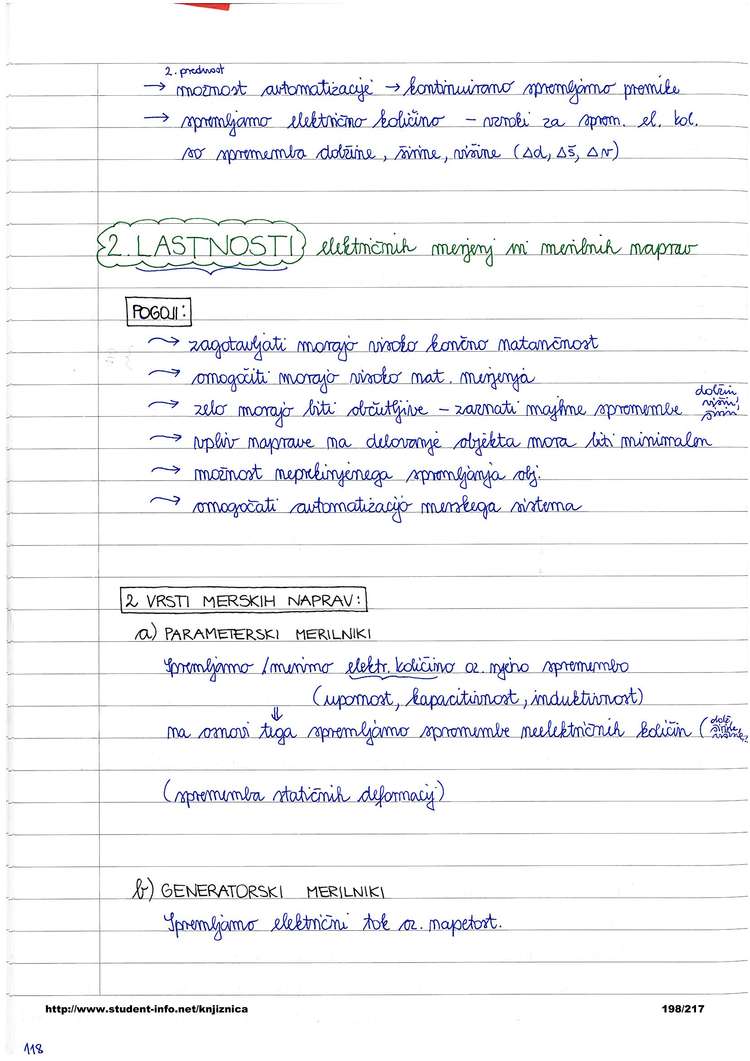 2. prednost
→ možnost avtomatizacije → kontinuirano spremljamo premike
→ spremljamo električno količino – vzroki za sprem. el. kol.
so sprememba dolžine, širine, višine (Δd, Δš, Δv)
2. LASTNOSTI električnih merjenj in merilnih naprav
POGOJI:
→ zagotavljati morajo visoko končno natančnost
→ omogočiti morajo visoko nat. merjenja
→ zelo morajo biti občutljive – zaznati majhne spremembe dolžin, višin, širin
→ vpliv naprave na delovanje objekta mora biti minimalen
→ možnost neprekinjenega spremljanja obj.
→ omogočati avtomatizacijo merskega sistema
2 VRSTI MERSKIH NAPRAV:
a) PARAMETERSKI MERILNIKI
Spremljamo / merimo elektr. količino oz. njeno spremembo
(upornost, kapacitivnost, induktivnost)
⇓
na osnovi tega spremljamo spremembe neelektričnih količin (dolž, širine,
(sprememba statičnih deformacij)
b) GENERATORSKI MERILNIKI
Spremljamo električni tok oz. napetost.
http://www.student-info.net/knjiznica 198/217
118